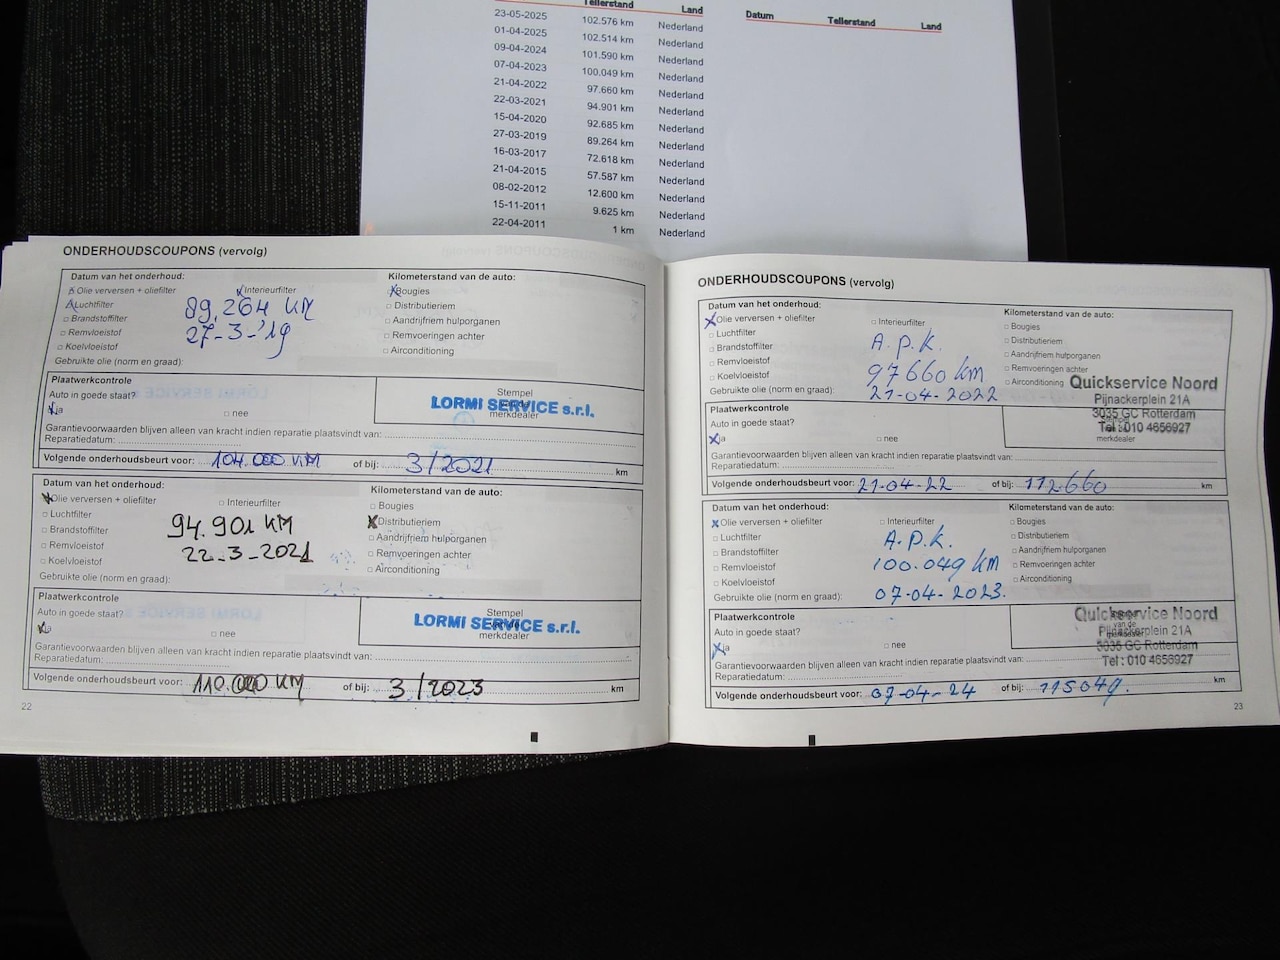 Tellerstand Land
23-05-2025 102.576 km Nederland
01-04-2025 102.514 km Nederland
09-04-2024 101.590 km Nederland
07-04-2023 100.049 km Nederland
21-04-2022 97.660 km Nederland
22-03-2021 94.901 km Nederland
15-04-2020 92.685 km Nederland
27-03-2019 89.264 km Nederland
16-03-2017 72.618 km Nederland
21-04-2015 57.587 km Nederland
08-02-2012 12.600 km Nederland
15-11-2011 9.625 km Nederland
22-04-2011 1 km Nederland
Datum Tellerstand Land
ONDERHOUDSCOUPONS (vervolg)
Datum van het onderhoud:
Kilometerstand van de auto:
Olie verversen + oliefilter
Interieurfilter
Bougies
Luchtfilter
Distributieriem
Brandstoffilter
Aandrijfriem hulporganen
Remvloeistof
Remvoeringen achter
Koelvloeistof
Airconditioning
89,264 KM
27-3-'19
Gebruikte olie (norm en graad):
Plaatwerkcontrole
Auto in goede staat?
ja
nee
Stempel
merkdealer
LORMI SERVICE s.r.l.
Garantievoorwaarden blijven alleen van kracht indien reparatie plaatsvindt van:
Reparatiedatum:
Volgende onderhoudsbeurt voor: 104.000 KM of bij: 3/2021 km
Datum van het onderhoud:
Kilometerstand van de auto:
Olie verversen + oliefilter
Interieurfilter
Bougies
Luchtfilter
Distributieriem
Brandstoffilter
Aandrijfriem hulporganen
Remvloeistof
Remvoeringen achter
Koelvloeistof
Airconditioning
94.901 KM
22-3-2021
Gebruikte olie (norm en graad):
Plaatwerkcontrole
Auto in goede staat?
ja
nee
Stempel
merkdealer
LORMI SERVICE s.r.l.
Garantievoorwaarden blijven alleen van kracht indien reparatie plaatsvindt van:
Reparatiedatum:
Volgende onderhoudsbeurt voor: 110.000 KM of bij: 3/2023 km
22
ONDERHOUDSCOUPONS (vervolg)
Datum van het onderhoud:
Kilometerstand van de auto:
Olie verversen + oliefilter
Interieurfilter
Bougies
Luchtfilter
Distributieriem
Brandstoffilter
Aandrijfriem hulporganen
Remvloeistof
Remvoeringen achter
Koelvloeistof
Airconditioning
A.P.K.
97660 km
21-04-2022
Gebruikte olie (norm en graad):
Quickservice Noord
Pijnackerplein 21A
3035 GC Rotterdam
Tel : 010 4656927
merkdealer
Plaatwerkcontrole
Auto in goede staat?
ja
nee
Garantievoorwaarden blijven alleen van kracht indien reparatie plaatsvindt van:
Reparatiedatum:
Volgende onderhoudsbeurt voor: 21-04-22 of bij: 112660 km
Datum van het onderhoud:
Kilometerstand van de auto:
Olie verversen + oliefilter
Interieurfilter
Bougies
Luchtfilter
Distributieriem
Brandstoffilter
Aandrijfriem hulporganen
Remvloeistof
Remvoeringen achter
Koelvloeistof
Airconditioning
A.P.K.
100.049 KM
07-04-2023.
Gebruikte olie (norm en graad):
Plaatwerkcontrole
Auto in goede staat?
ja
nee
Quickservice Noord
van de
Pijnackerplein 21A
3035 GC Rotterdam
Tel : 010 4656927
Garantievoorwaarden blijven alleen van kracht indien reparatie plaatsvindt van:
Reparatiedatum:
Volgende onderhoudsbeurt voor: 07-04-24 of bij: 115049. km
23